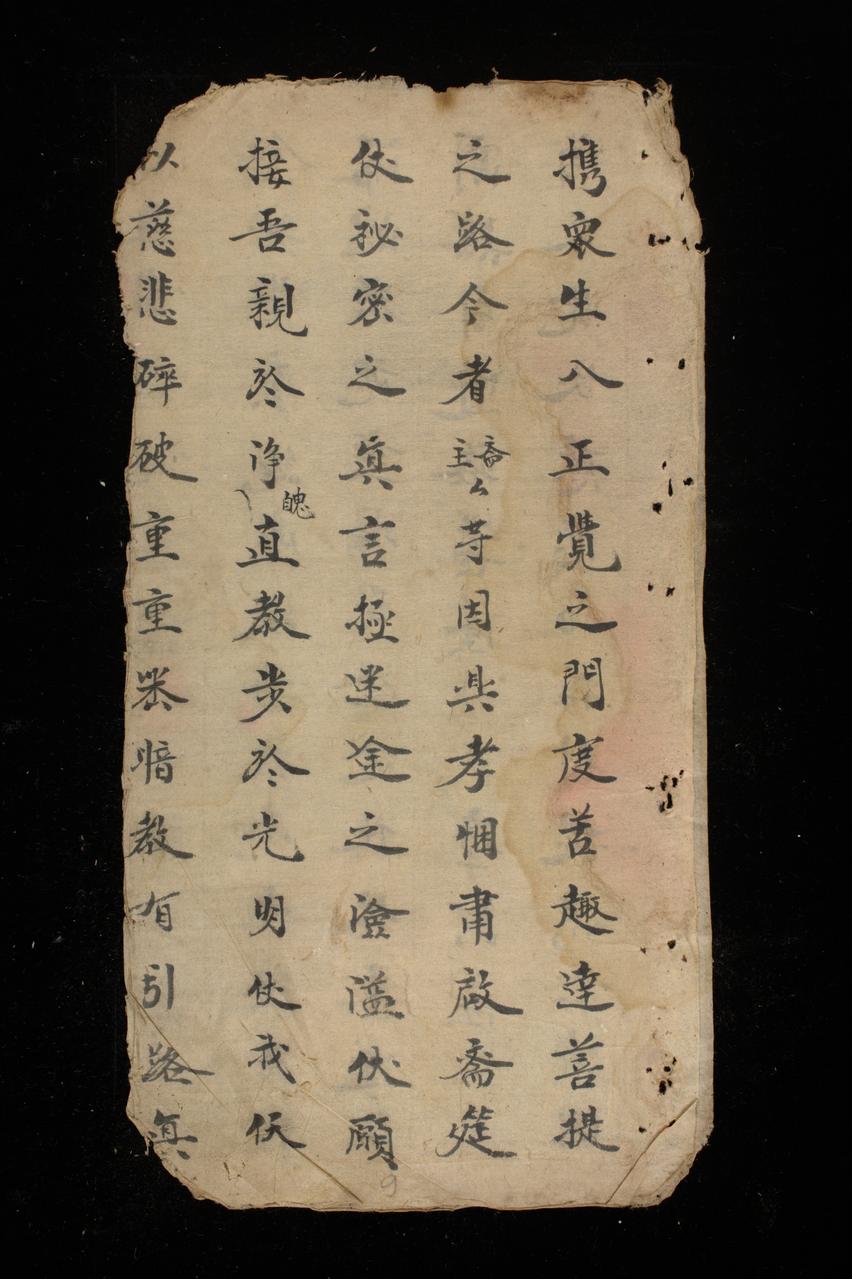 携衆生八正覺之門度苦趣達菩提
之路今者齋主厶等因興孝悃肅啟齋筵
仗秘密之真言拯迷途之淪溢伏願
接吾親於淨魄直教步於光明仗我仸
以慈悲碎破重重黑暗教有引路真